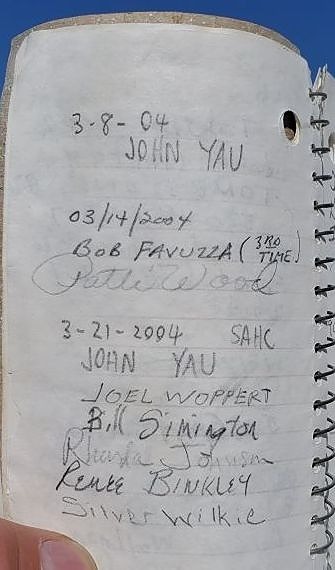 3-8-04
JOHN YAU
03/14/2004
BOB FAVUZZA (3RD TIME)
Patti Wood
3-21-2004 SAHC
JOHN YAU
JOEL WOPPERT
Bill Simington
Rhonda Johnson
RENEE BINKLEY
Silver Wilkie